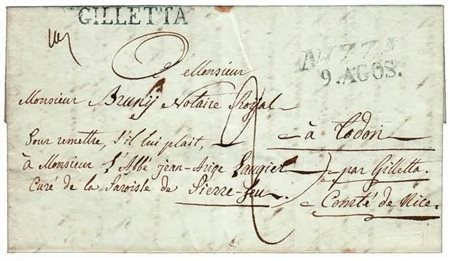 GILLETTA
NIZZA
9. AGOS.
Monsieur
Monsieur Bruny Notaire Royal
à Todon
Pour remettre, s'il lui plait,
à Monsieur L'Abbé jean-Ange Laugier
par Gilletta
Curé de la Paroisse de Pierre-feu
Comté de Nice
2